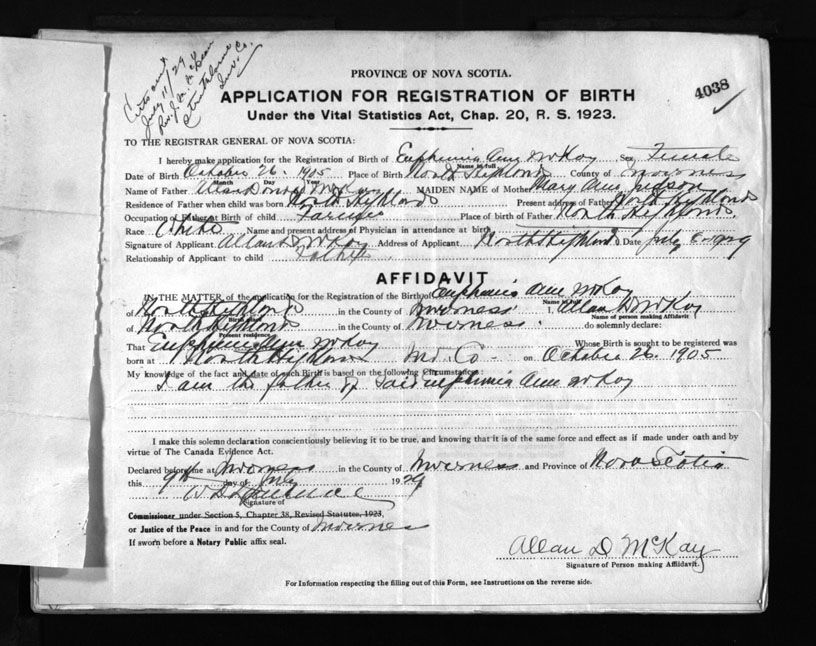 July 11/29
PROVINCE OF NOVA SCOTIA.
4038
APPLICATION FOR REGISTRATION OF BIRTH
Under the Vital Statistics Act, Chap. 20, R. S. 1923.
TO THE REGISTRAR GENERAL OF NOVA SCOTIA:
I hereby make application for the Registration of Birth of Euphemia Ann McKay Sex Female
Name in full
Date of Birth October 26. 1905 Place of Birth North Highlands County of Inverness
Month Day Year
Name of Father Allan Donald McKay MAIDEN NAME of Mother Mary Ann
Residence of Father when child was born North Highlands Present address of Father North Highlands
Occupation of Father at Birth of child Farmer Place of birth of Father North Highlands
Race White Name and present address of Physician in attendance at birth
Signature of Applicant Allan D McKay Address of Applicant North Highlands Date July 6-1929
Relationship of Applicant to child Father
AFFIDAVIT
IN THE MATTER of the application for the Registration of the Birth of Euphemia Ann McKay
Name in full
of North Highlands in the County of Inverness I, Allan D McKay
Birth place
Name of person making Affidavit
of North Highlands in the County of Inverness. do solemnly declare:
Present residence
That Euphemia Ann McKay Whose Birth is sought to be registered was
born at North Highlands Inv. Co- on October 26. 1905
My knowledge of the fact and date of such Birth is based on the following Circumstances:
I am the father of said Euphemia Ann McKay
I make this solemn declaration conscientiously believing it to be true, and knowing that it is of the same force and effect as if made under oath and by
virtue of The Canada Evidence Act.
Declared before me at Inverness in the County of Inverness and Province of Nova Scotia
this 9th day of July 1929
Signature of
Commissioner under Section 5, Chapter 38, Revised Statutes, 1923,
or Justice of the Peace in and for the County of Inverness
If sworn before a Notary Public affix seal.
Allan D McKay
Signature of Person making Affidavit.
For Information respecting the filling out of this Form, see Instructions on the reverse side.